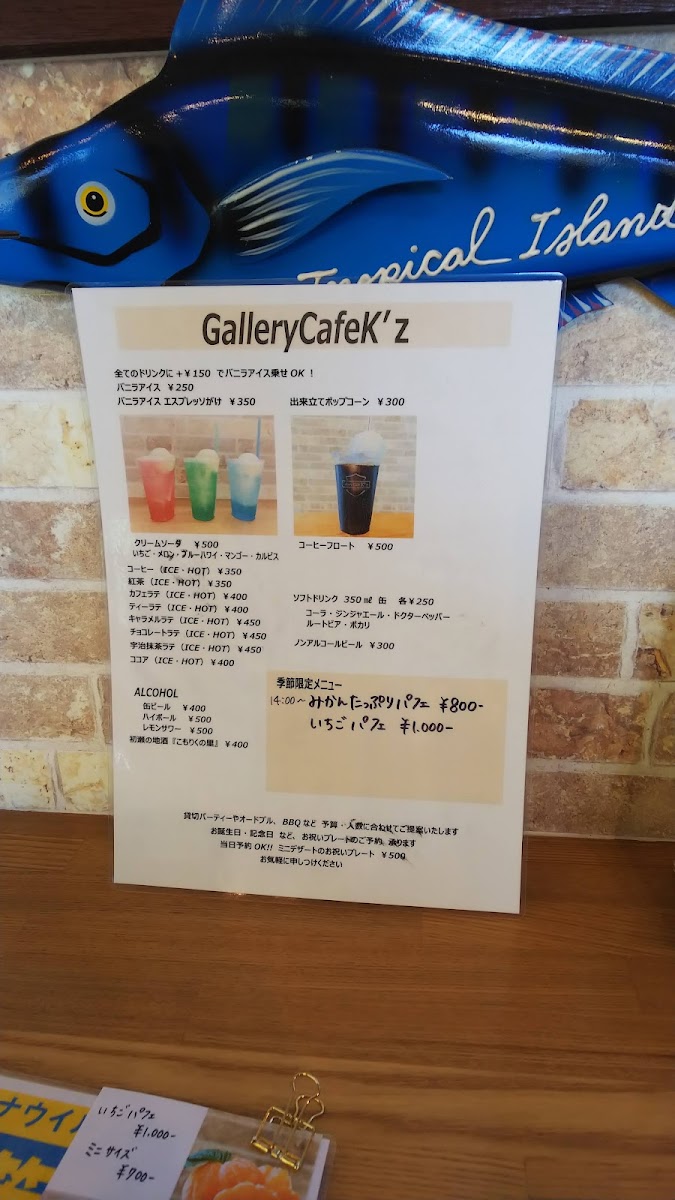 Tropical Island
GalleryCafeK'z
全てのドリンクに +¥150 でバニラアイス乗せ OK !
バニラアイス ¥250
バニラアイス エスプレッソがけ ¥350
出来立てポップコーン ¥300
クリームソーダ ¥500
いちご・メロン・ブルーハワイ・マンゴー・カルピス
コーヒーフロート ¥500
コーヒー (ICE・HOT) ¥350
紅茶 (ICE・HOT) ¥350
カフェラテ (ICE・HOT) ¥400
ティーラテ (ICE・HOT) ¥400
キャラメルラテ (ICE・HOT) ¥450
チョコレートラテ (ICE・HOT) ¥450
宇治抹茶ラテ (ICE・HOT) ¥450
ココア (ICE・HOT) ¥400
ソフトドリンク 350㎖ 缶 各¥250
コーラ・ジンジャエール・ドクターペッパー
ルートビア・ポカリ
ノンアルコールビール ¥300
ALCOHOL
缶ビール ¥400
ハイボール ¥500
レモンサワー ¥500
初瀬の地酒『こもりくの里』 ¥400
季節限定メニュー
14:00〜 みかんたっぷりパフェ ¥800-
いちごパフェ ¥1.000-
貸切パーティーやオードブル、BBQ など 予算・人数に合わせてご提案いたします
お誕生日・記念日 など、お祝いプレートのご予約、承ります
当日予約 OK!! ミニデザートのお祝いプレート ¥500
お気軽に申しつけください
ナウイル
いちごパフェ
¥1.000-
ミニサイズ
¥700-